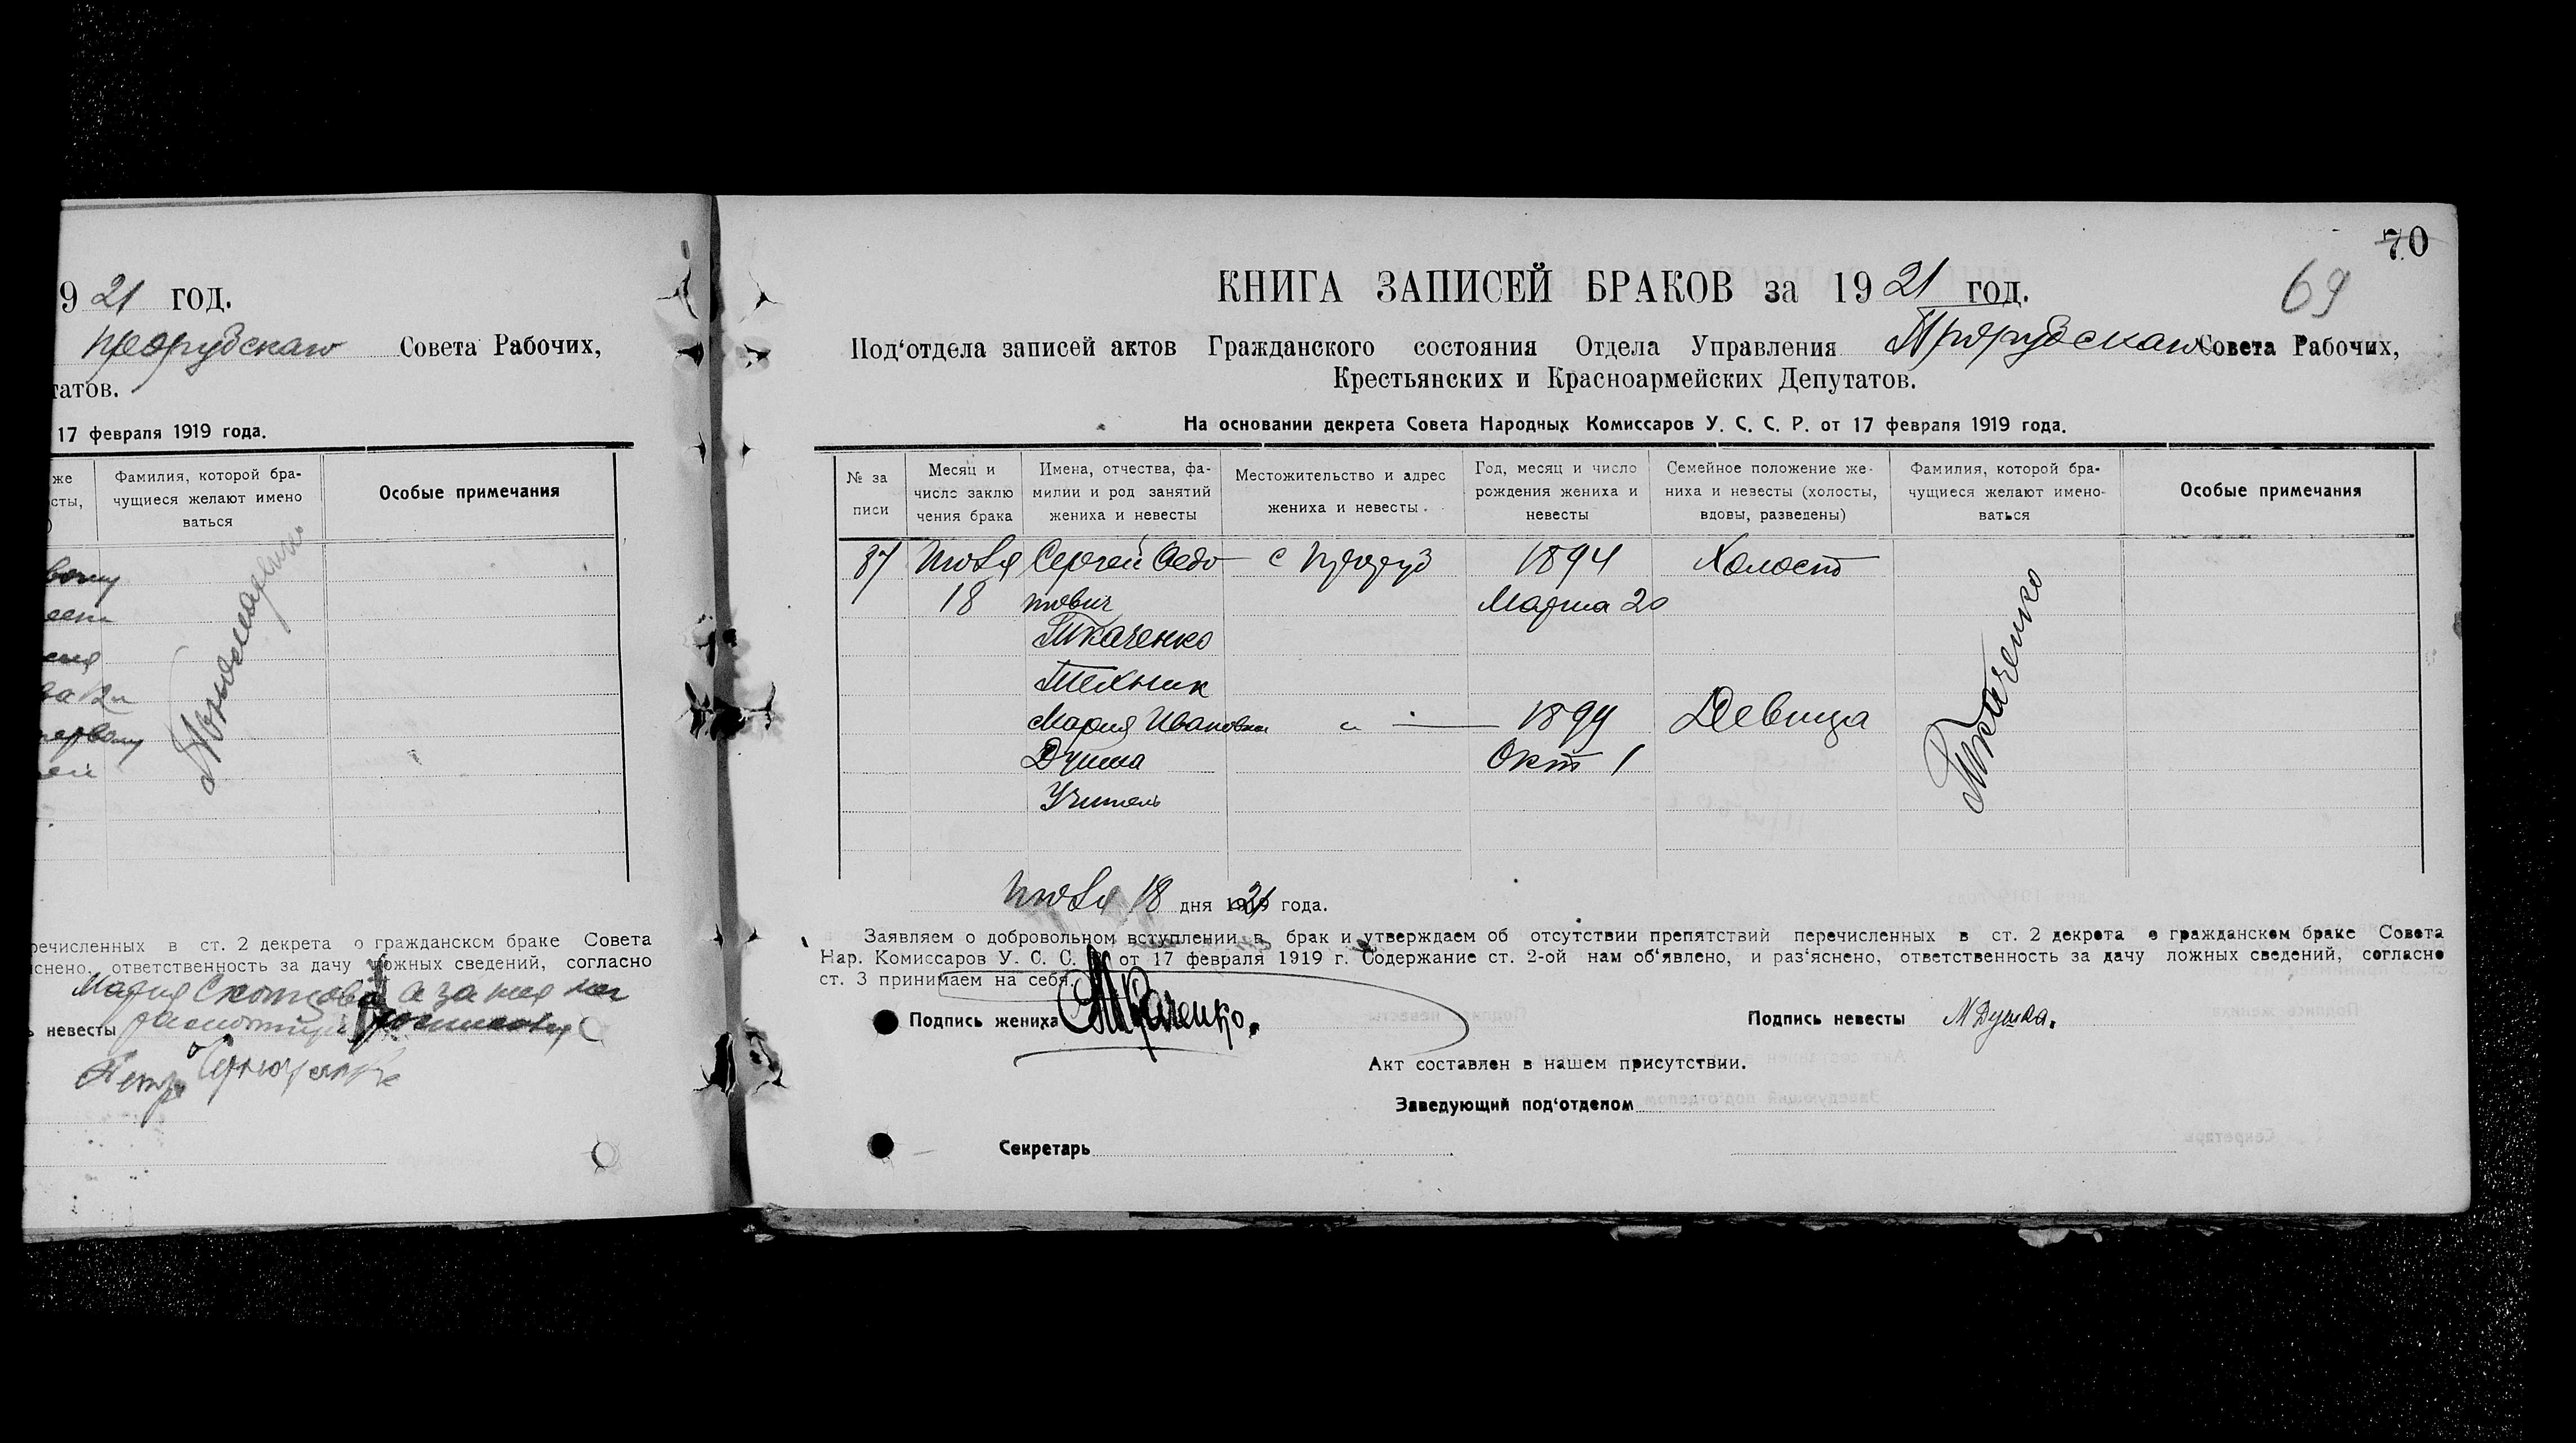 9 21 год.
Совета Рабочих,
татов.
17 февраля 1919 года.
же
сты,
Фамилия, которой бра-
чущиеся желают имено
ваться
Особые примечания
речисленных в ст. 2 декрета о гражданском браке Совета
снено, ответственность за дачу ложных сведений, согласно
Мария
ь невесты
70
69
КНИГА ЗАПИСЕЙ БРАКОВ за 19 21 год.
Под'отдела записей актов Гражданского состояния Отдела Управления Совета Рабочих,
Крестьянских и Красноармейских Депутатов.
На основании декрета Совета Народных Комиссаров У. С. С. Р. от 17 февраля 1919 года.
№ за
писи
Месяц и
число заклю
чения брака
Имена, отчества, фа-
милии и род занятий
жениха и невесты
Местожительство и адрес
жениха и невесты.
Год, месяц и число
рождения жениха и
невесты
Семейное положение же-
ниха и невесты (холосты,
вдовы, разведены)
Фамилия, которой бра-
чущиеся желают имено-
ваться
Особые примечания
87 Июля Сергей Федо с 1894 Холост
18 тович Марта 20
Ткаченко
Техник
Мария Ивановна " — Девица
Окт 1
Учитель
Ткаченко
Июля 18 дня 1921 года.
Заявляем о добровольном вступлении в брак и утверждаем об отсутствии препятствий перечисленных в ст. 2 декрета о гражданском браке Совета
Нар. Комиссаров У. С. С. Р. от 17 февраля 1919 г. Содержание ст. 2-ой нам об'явлено, и раз'яснено, ответственность за дачу ложных сведений, согласно
ст. 3 принимаем на себя.
Подпись жениха Ткаченко.
Подпись невесты
Акт составлен в нашем присутствии.
Заведующий под'отделом
Секретарь